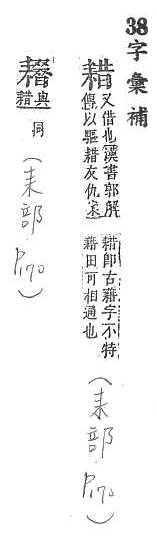 38字彙補
耤
又借也漢書郭解
傳以驅耤友仇案
耤即古藉字不特
藉田可相通也
(耒部 P170)
與耤同
(耒部 P170)